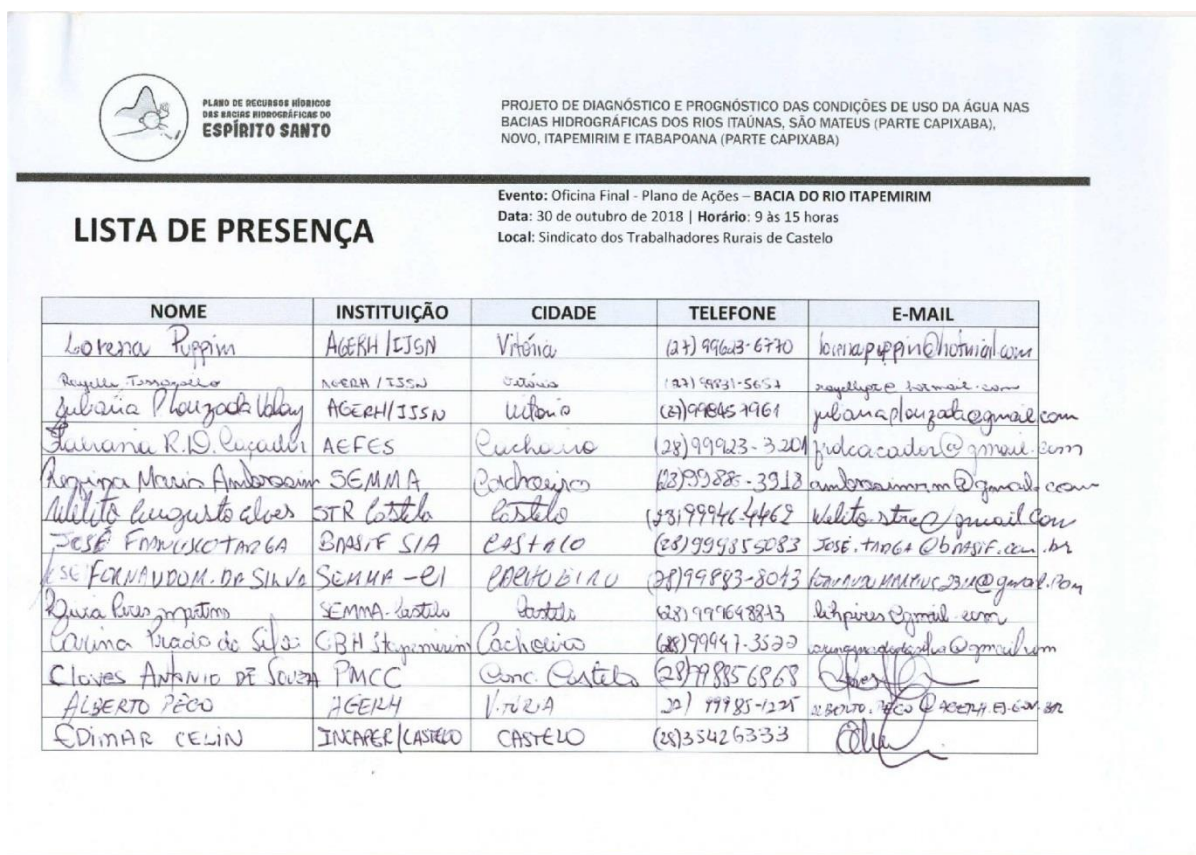 PLANO DE RECURSOS HÍDRICOS
DAS BACIAS HIDROGRÁFICAS DO
ESPÍRITO SANTO
PROJETO DE DIAGNÓSTICO E PROGNÓSTICO DAS CONDIÇÕES DE USO DA ÁGUA NAS
BACIAS HIDROGRÁFICAS DOS RIOS ITAÚNAS, SÃO MATEUS (PARTE CAPIXABA),
NOVO, ITAPEMIRIM E ITABAPOANA (PARTE CAPIXABA)
LISTA DE PRESENÇA
Evento: Oficina Final - Plano de Ações – BACIA DO RIO ITAPEMIRIM
Data: 30 de outubro de 2018 | Horário: 9 às 15 horas
Local: Sindicato dos Trabalhadores Rurais de Castelo
NOME INSTITUIÇÃO CIDADE TELEFONE E-MAIL
Lorena Puppim AGERH/IJSN Vitória (27) 99623-6770 lorenapuppin@hotmail.com
AGERH/IJSN Vitória
AGERH/IJSN Vitória julianaplouzada@gmail.com
R.D. Caçador AEFES Cachoeiro (28)99923-3201 frdcacador@gmail.com
Regina Maria Ambrosim SEMMA Cachoeiro ambrosimrm@gmail.com
Augusto Alves STR Castelo Castelo
JOSÉ FRANCISCO TARGA BRASIF S/A CASTELO (28)999855083 JOSÉ.TARGA@bRASIF.com.br
JOSÉ FERNANDO M. DA SILVA SEMMA-CI CACHOEIRO (28)99883-8013
Pires Martins SEMMA-Castelo Castelo (28)999648843 lihpires@gmail.com
Carina Prado da Silva CBH Itapemirim Cachoeiro (28)99947-3522 carinapradodasilva@gmail.com
Cloves ANTÔNIO DE SOUZA PMCC Conc. Castelo (28)998856868
ALBERTO PÊGO AGERH VITÓRIA 99985-1225 ALBERTO.PEGO@AGERH.ES.GOV.BR
EDIMAR CELIN INCAPER/CASTELO CASTELO (28)35426333